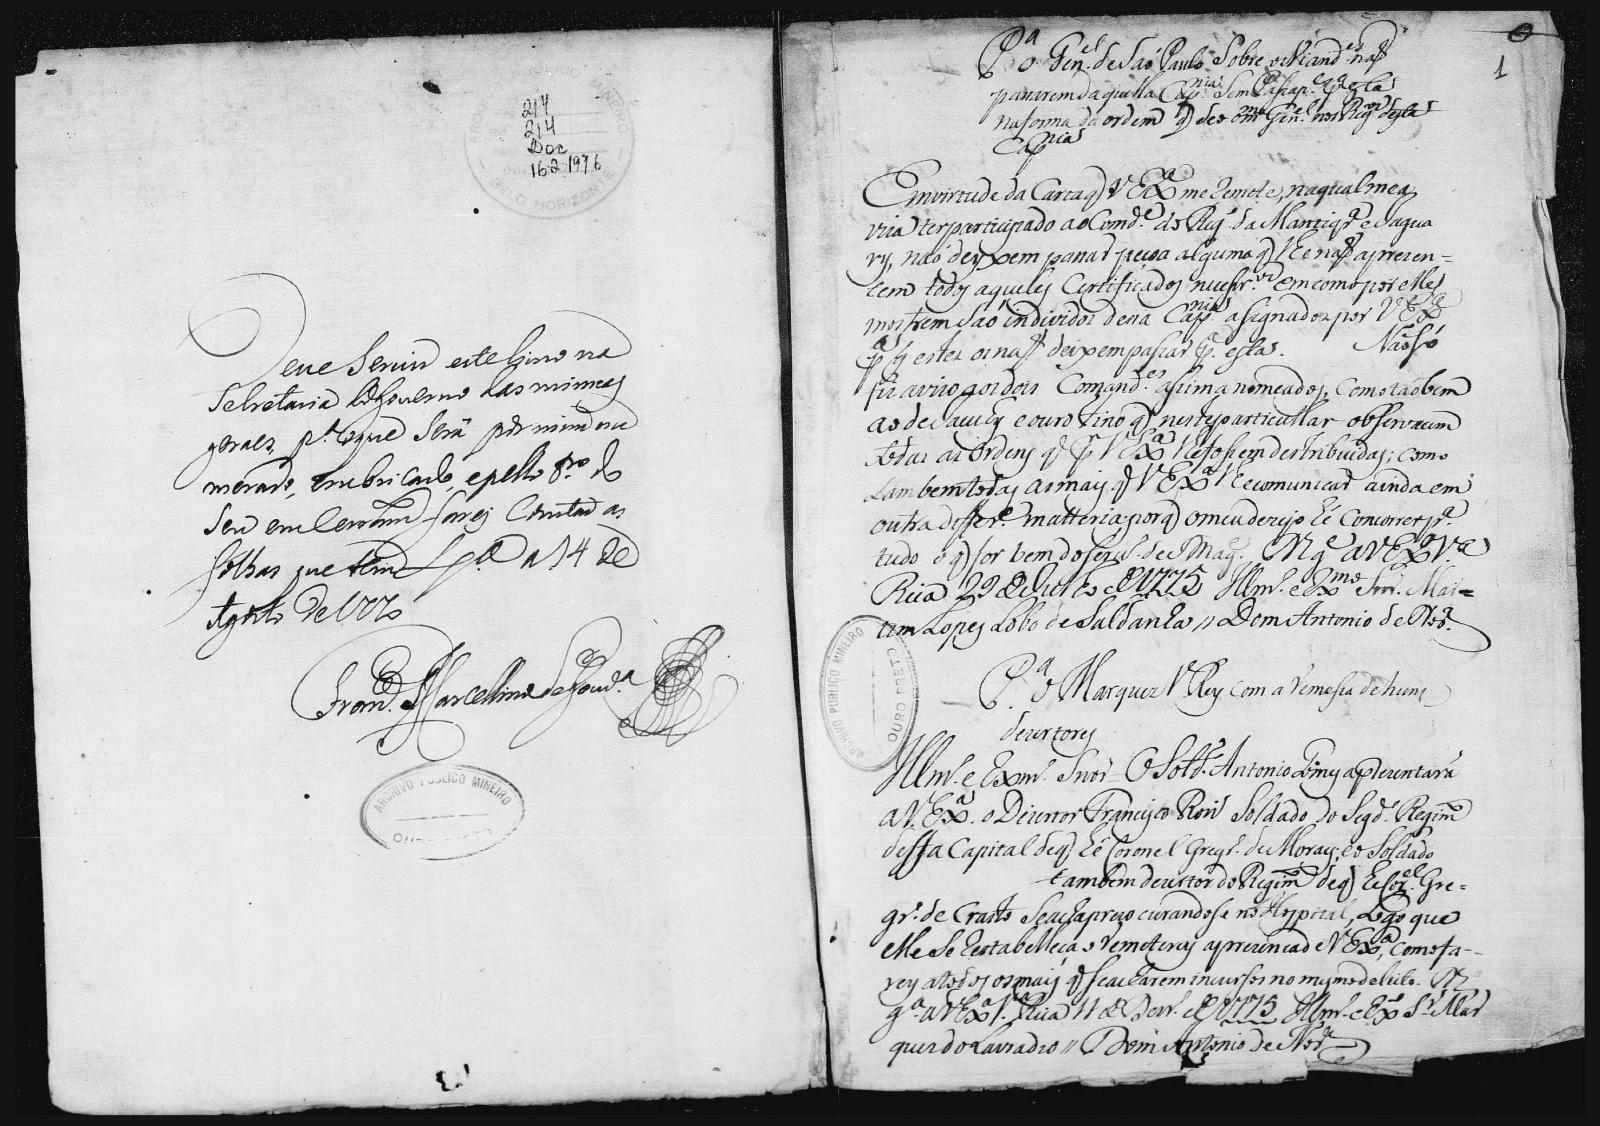 214
214
Doc
16.2.1976
ARCHIVO PUBLICO MINEIRO
BELO HORIZONTE
Deve Servir este Livro na
Secretaria do Governo das minnas
geraes, p.ª o que Será por mim nu
merado, e rubricado, e pello
Seu emSerram.to farey Constar as
folhas que tem a 14 de
Agosto de 177
Fran.co Marcellino de Gouv.ª
ARCHIVO PUBLICO MINEIRO
OURO PRETO
1
P.ª o Gen.el de Saó Paulo Sobre os Viand.es naó
passarem daquella Cap.nia Sem Passap.e p.ª esta
na forma da ordem q deo o m.mo Gen.el nos Reg.os desta
Cap.nia
Em virtude da Carta q V Ex.ª me remete, na qual me a
viza ter participado ao Comd.e do Reg.º da Mantiqr.ª e Jagua
ry, naó deyxem passar pessoa alguma q lhe naó aprezen=
tem todos aqueles Certificados em como por elles
mostrem Saó individos dessa Cap.nia asignados por V Ex.ª
p.ª q estes os naó deixem passar p.ª esta. Naó só
fiz avizo aos dois Comand.es asima nomeados, como taóbem
ao de Jacuhy e ouro fino q neste particullar observacem
todas as ordens q p.r V Ex.ª lhe fossem destribuidas; como
tambem todas as mais q V Ex.ª lhe comunicar ainda em
outra differ.e matteria; porq o meu dezejo hé Concorrer p.ª
tudo o q for bem do Serv.º de S Mag.e D.s g.e a V Ex.ª V.ª
Rica 29 de Julho de 1775 Illm.º e Exmo Snr. Mar=
tim Lopes Lobo de Saldanha // Dom Antonio de Nor.ª
P.ª o Marquez V Rey com a remessa de huns
dezertores
Illm.º e Exm.º Snor = O Sold.º Antonio Gomes aprezentará
a V. Ex.ª o Dezertor Francisco Roiz Soldado do Segd.º Regim.to
dessa Capital de q hé Coronel Greg.º de Moraes; e o Soldado
tambem dezertor do Regim.to de q he Cor.el Gre=
gr.º de Crasto Se acha prezo curandose no Hospital, Logo que
elle Se restabelleça o remeterey a prezenca de V Ex.ª, como fa=
rey a todos os mais q Se acharem incursos no mesmo delicto. D.s
g.e a V Ex.ª V.ª Rica 11 de Dezr.º de 1775 Illm.º e Ex.mo S.r Mar
quez do Lavradio // Dom Antonio de Nor.ª
ARCHIVO PUBLICO MINEIRO
OURO PRETO